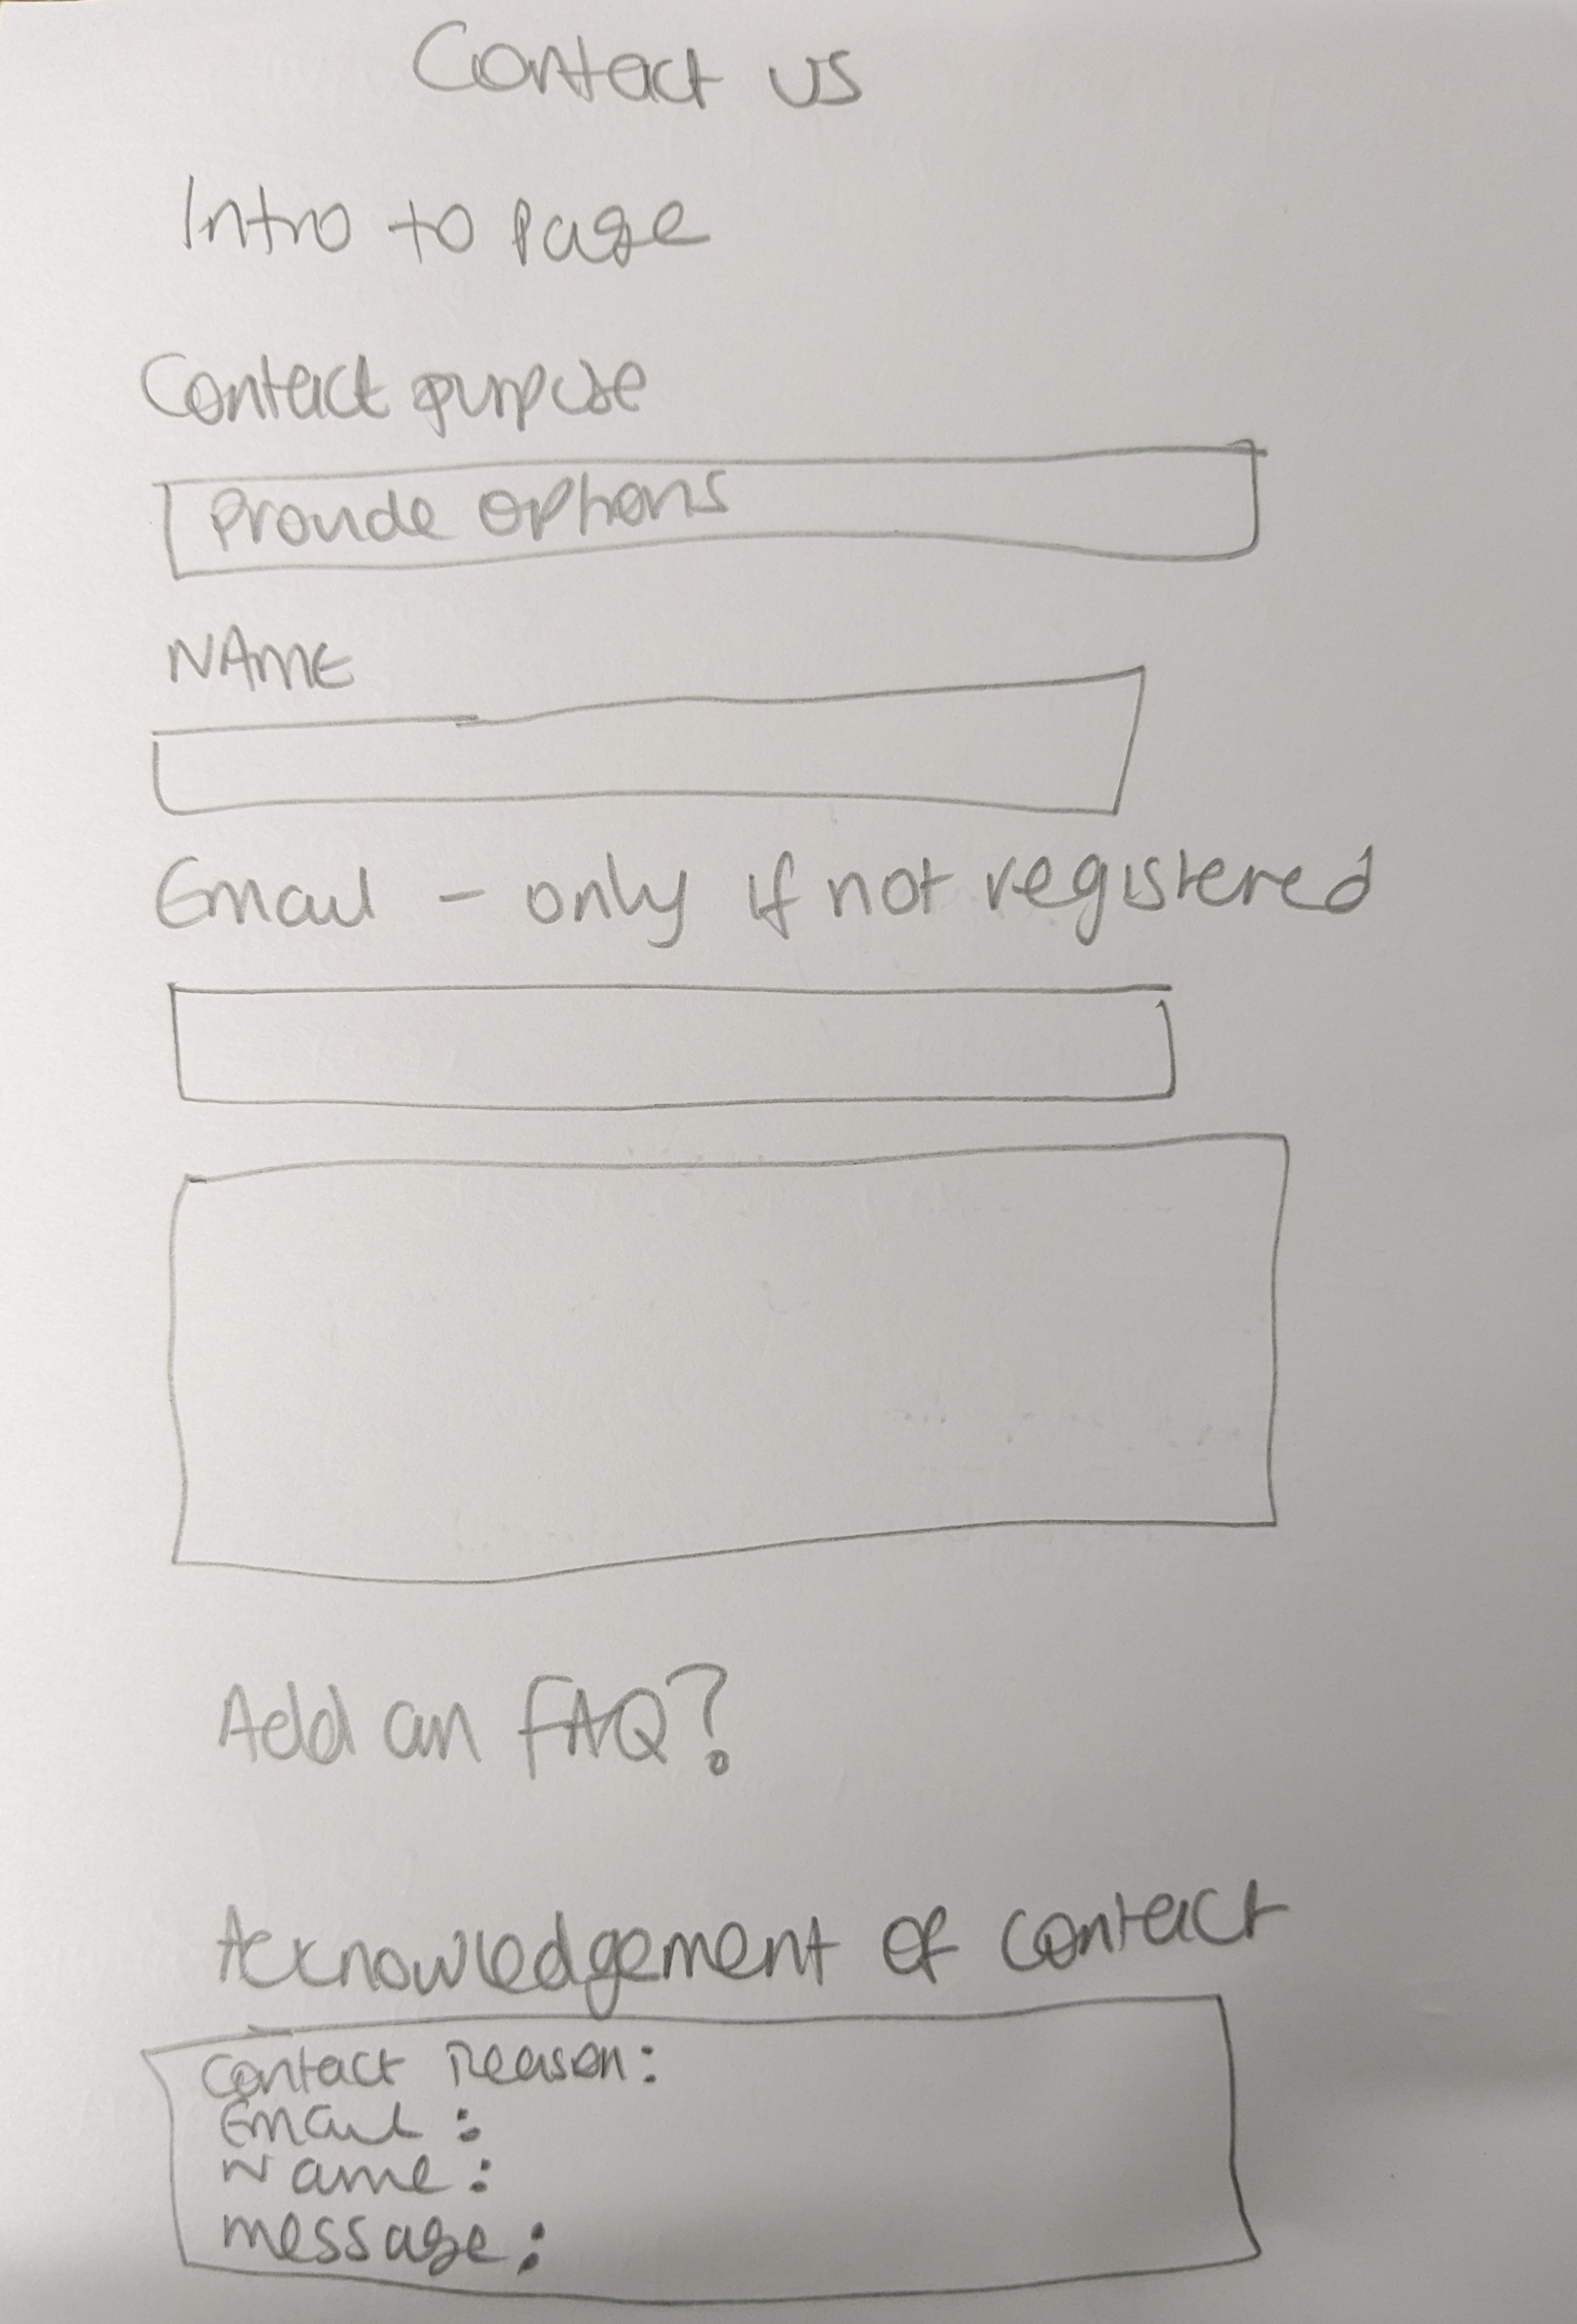 Contact us
Intro to page
Contact purpose
Provide options
NAME
Email - only if not registered
Add an FAQ?
Acknowledgement of contact
Contact Reason:
Email :
Name :
message :